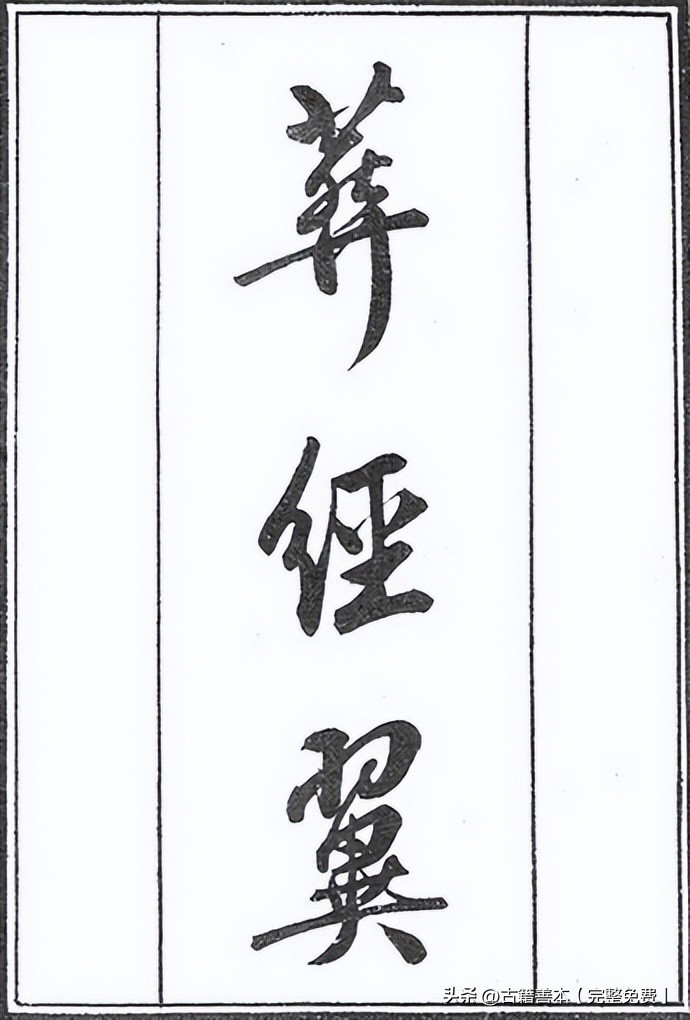 葬
經
翼
头条 @古籍善本（完整免费）